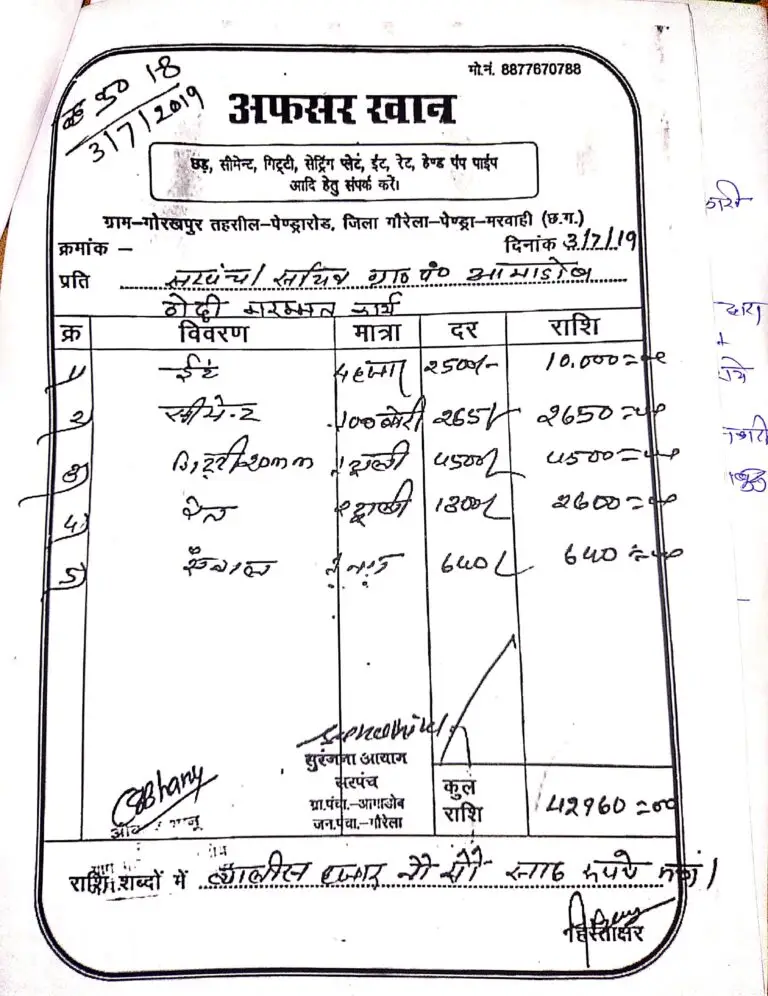 मो.नं. 8877670788
50 18
3/7/2019
अफसर खान
छड़, सीमेन्ट, गिट्टी, सेट्रिंग प्लेट, ईट, रेट, हेण्ड पंप पाईप
आदि हेतु संपर्क करें।
ग्राम-गोरखपुर तहसील-पेण्ड्रारोड, जिला गौरेला-पेण्ड्रा-मरवाही (छ.ग.)
क्रमांक - दिनांक 3/7/19
प्रति सरपंच/सचिव ग्राम पं० आमाडोब
मरम्मत कार्य
क्र विवरण मात्रा दर राशि
1 ईट 4 हजा 2500/- 10.000=00
2 सीमेन्ट 100 बोरी 265/- 2650=00
3 गिट्टी-20mm 1 ट्राली 4500/- 4500=00
4 रेत 2 ट्राली 1300/- 2600=00
5 640/- 640=00
सुरंजना आयाम
सरपंच
ग्रा.पंचा.-आमाडोब
जन.पंचा.-गौरेला
कुल राशि 42960=00
राशि शब्दों में ब्यालीस हजार नौ सौ साठ रूपये
हस्ताक्षर